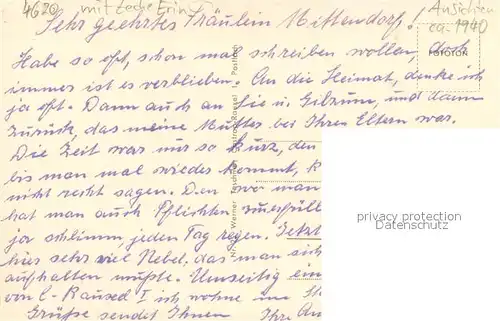 4620 mit Zeche Erin
Ansichten
ca. 1940
Sehr geehrtes Fräulein Mittendorf!
Habe so oft, schon mal schreiben wollen, doch
immer ist es verblieben. An die Heimat, denke ich
ja oft. Dann auch an Sie u. und dann
zurück, das meine Mutter bei Ihren Eltern war.
Die Zeit war mir so kurz, den
bis man mal wieder kommt, k
nicht recht sagen. Den wo man
hat man auch Pflichten zuerfüll
ja schlimm, jeden Tag regen. Jetzt
hier sehr viel Nebel, das man sich
aufhalten mußte. Umseitig ein
von C-Rauxel I ich wohne im
Grüße sendet Ihnen Ihre
Werner Castrop-Rauxel 1, Postfach
privacy protection
Datenschutz